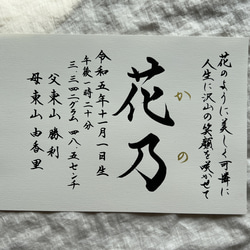 花のように美しく可憐に
人生に沢山の笑顔を咲かせて
かの
花乃
令和五年十一月一日生
午後一時二十分
三三四二グラム 四八.五センチ
父東山 勝利
母東山 由香里